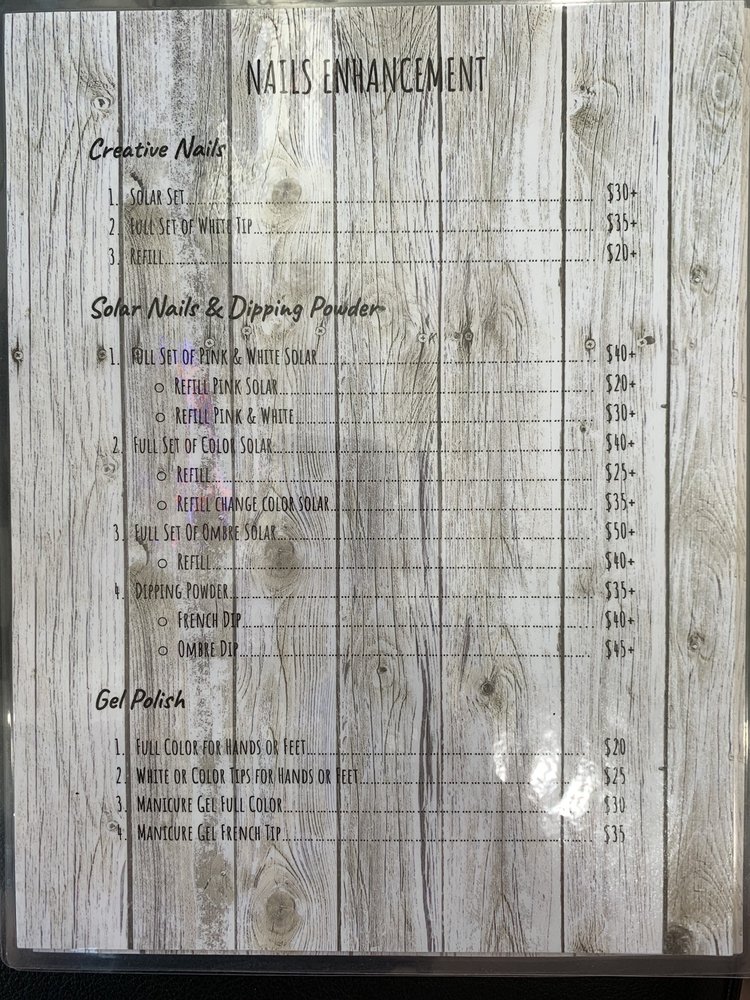 NAILS ENHANCEMENT
Creative Nails
1. SOLAR SET $30+
2. FULL SET OF WHITE TIP $35+
3. REFILL $20+
Solar Nails & Dipping Powder
1. FULL SET OF PINK & WHITE SOLAR $40+
○ REFILL PINK SOLAR $20+
○ REFILL PINK & WHITE $30+
2. FULL SET OF COLOR SOLAR $40+
○ REFILL $25+
○ REFILL CHANGE COLOR SOLAR $35+
3. FULL SET OF OMBRE SOLAR $50+
○ REFILL $40+
4. DIPPING POWDER $35+
○ FRENCH DIP $40+
○ OMBRE DIP $45+
Gel Polish
1. FULL COLOR FOR HANDS OR FEET $20
2. WHITE OR COLOR TIPS FOR HANDS OR FEET $25
3. MANICURE GEL FULL COLOR $30
4. MANICURE GEL FRENCH TIP $35